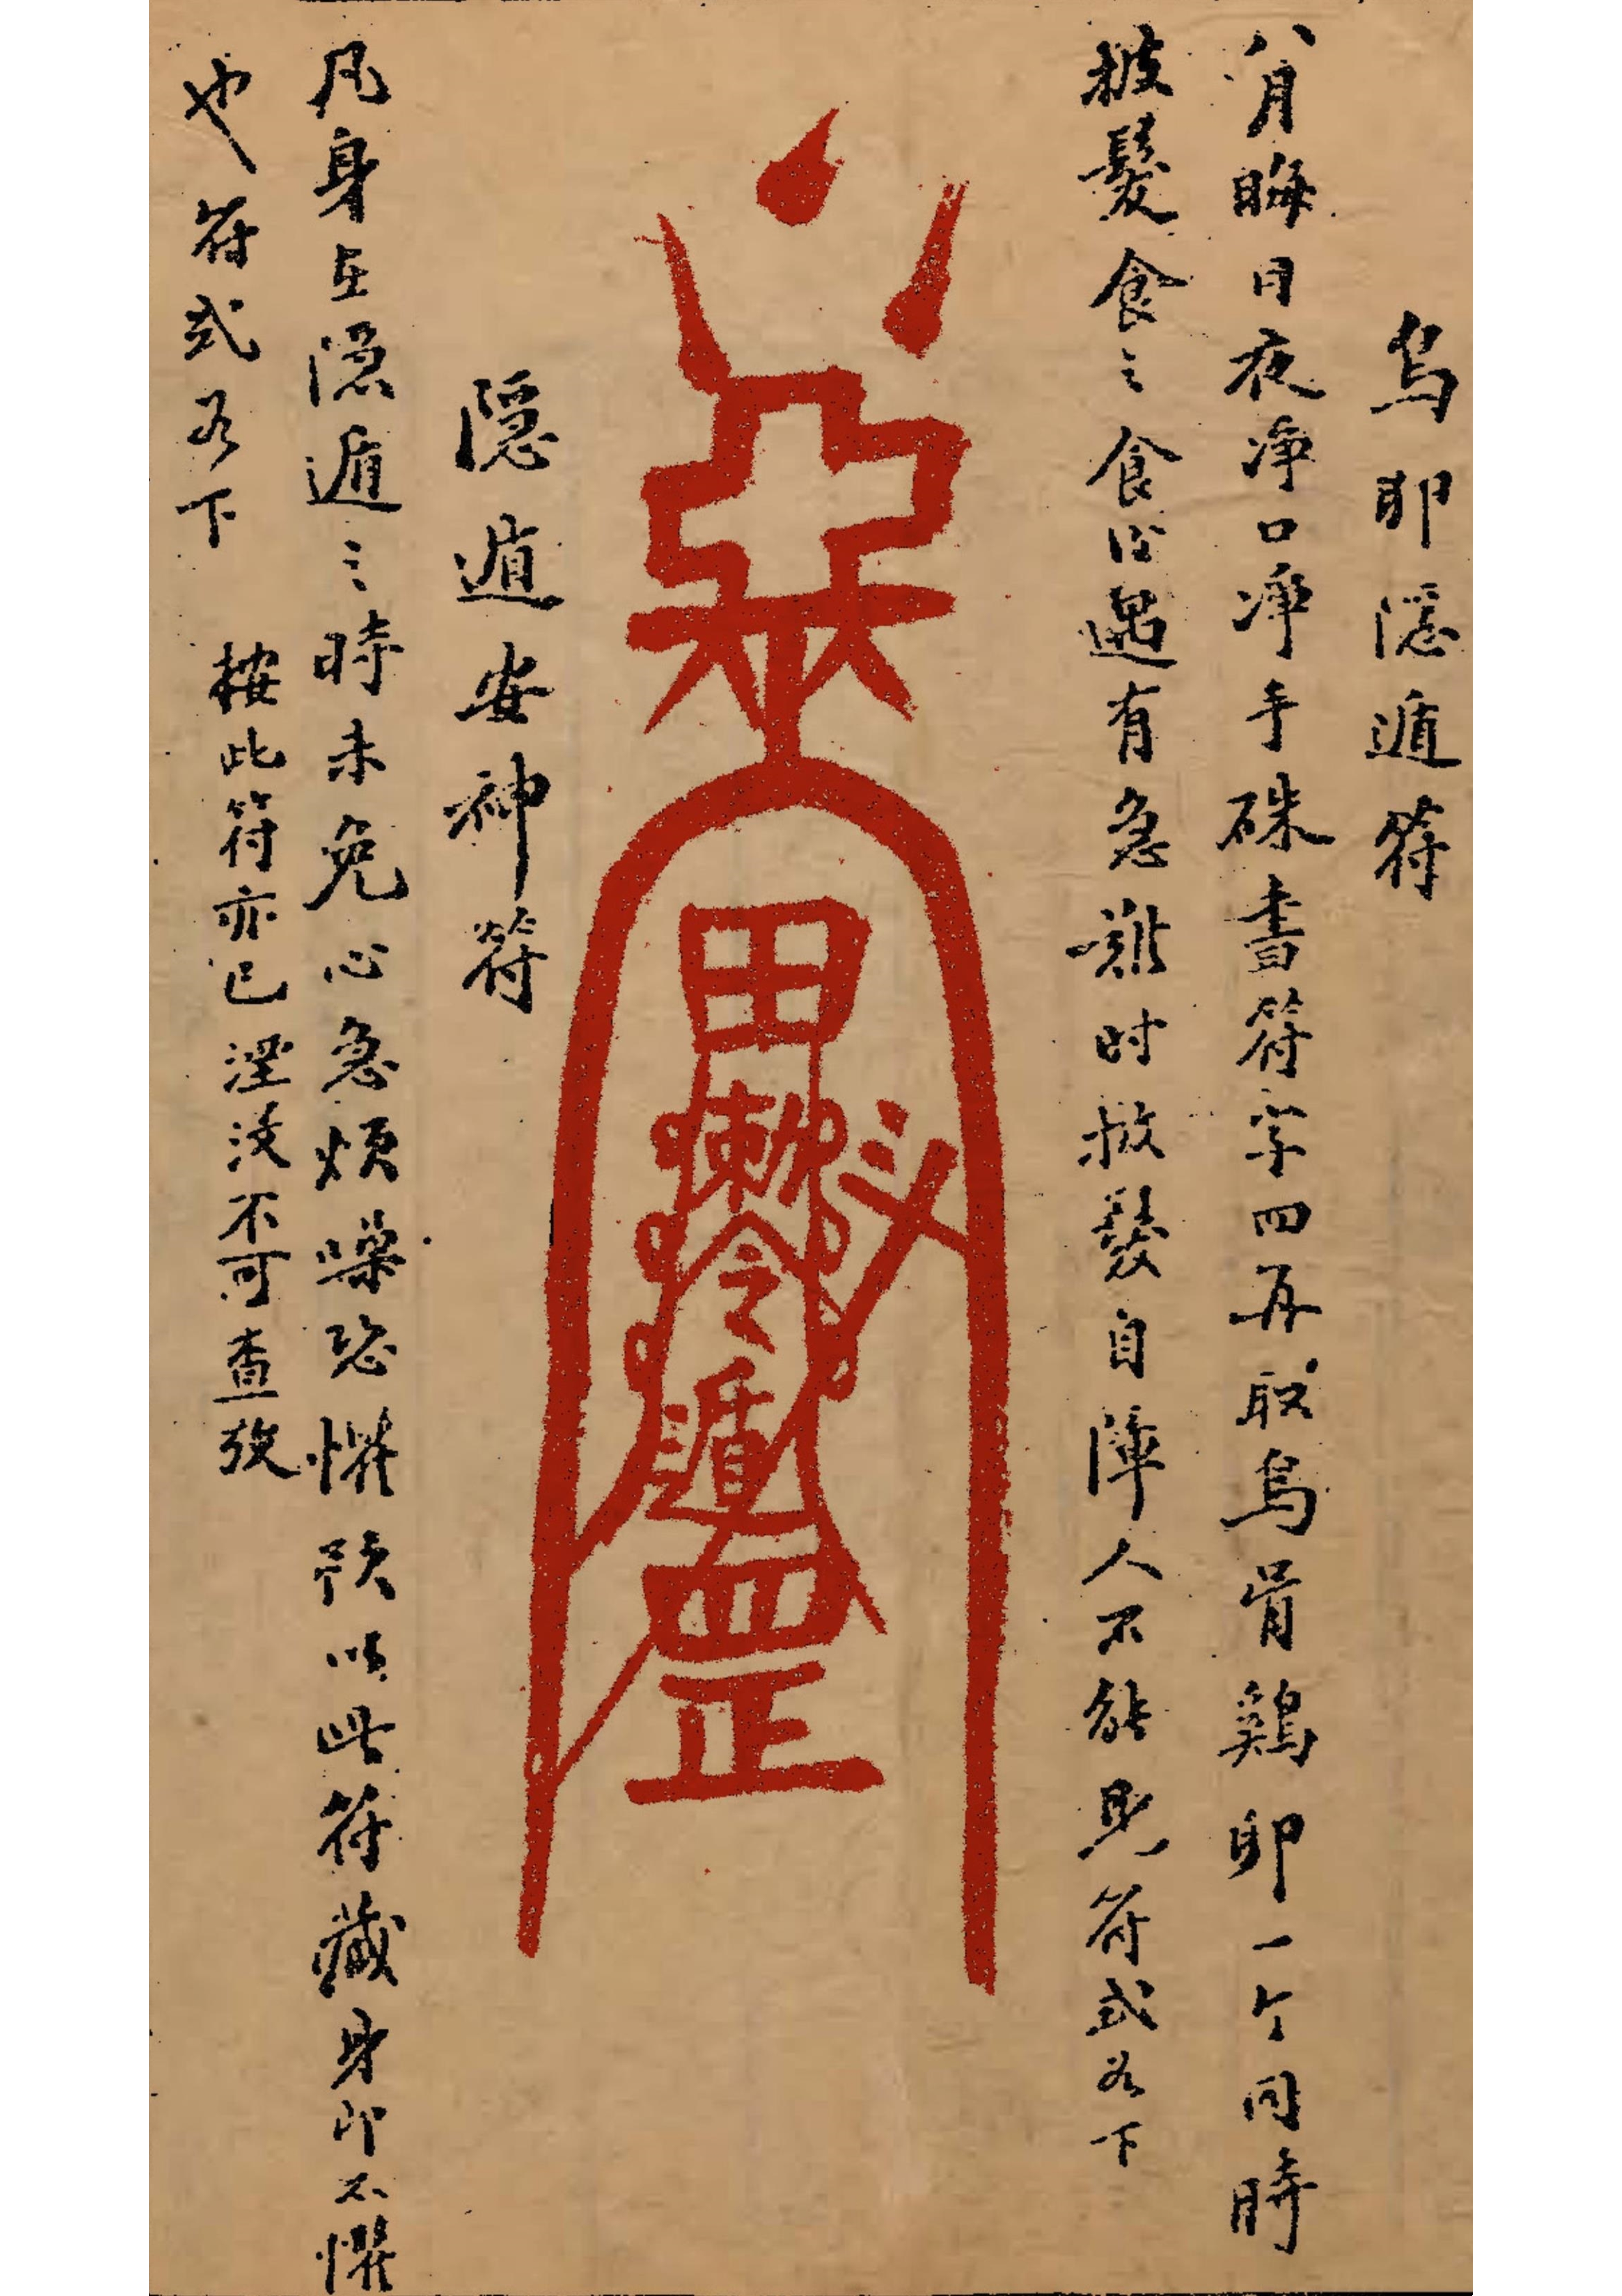 烏卵隱遁符
八月晦日夜淨口淨手硃書符字四再取烏骨鷄卵一个同時
披髮食之食后遇有急難时披髮自陣人不能見符式如下
田
敕令
斗
遁
罡
隱遁安神符
凡身在隱遁之時未免心急煩噪恐懼預以此符藏身即不懼
也符式如下 按此符亦已湮沒不可查攷